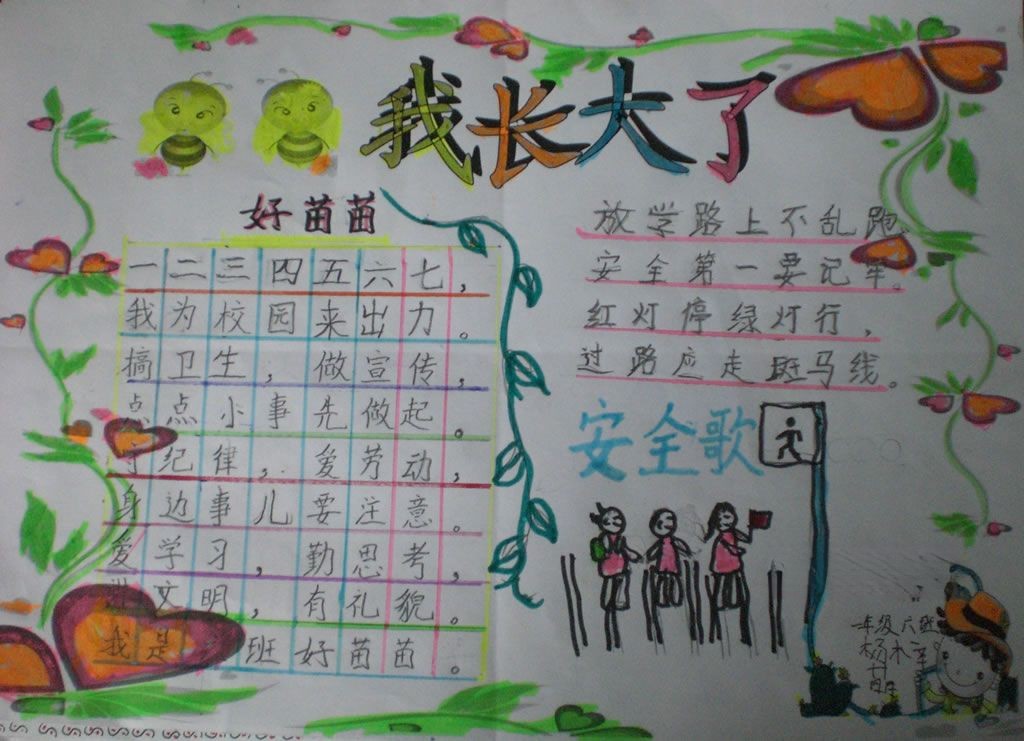 我长大了
好苗苗
一二三四五六七，
我为校园来出力。
搞卫生，做宣传，
点点小事先做起。
守纪律，爱劳动，
身边事儿要注意。
爱学习，勤思考，
讲文明，有礼貌。
我是 班好苗苗。
放学路上不乱跑
安全第一要记牢。
红灯停绿灯行，
过路应走斑马线。
安全歌
一年级六班
杨